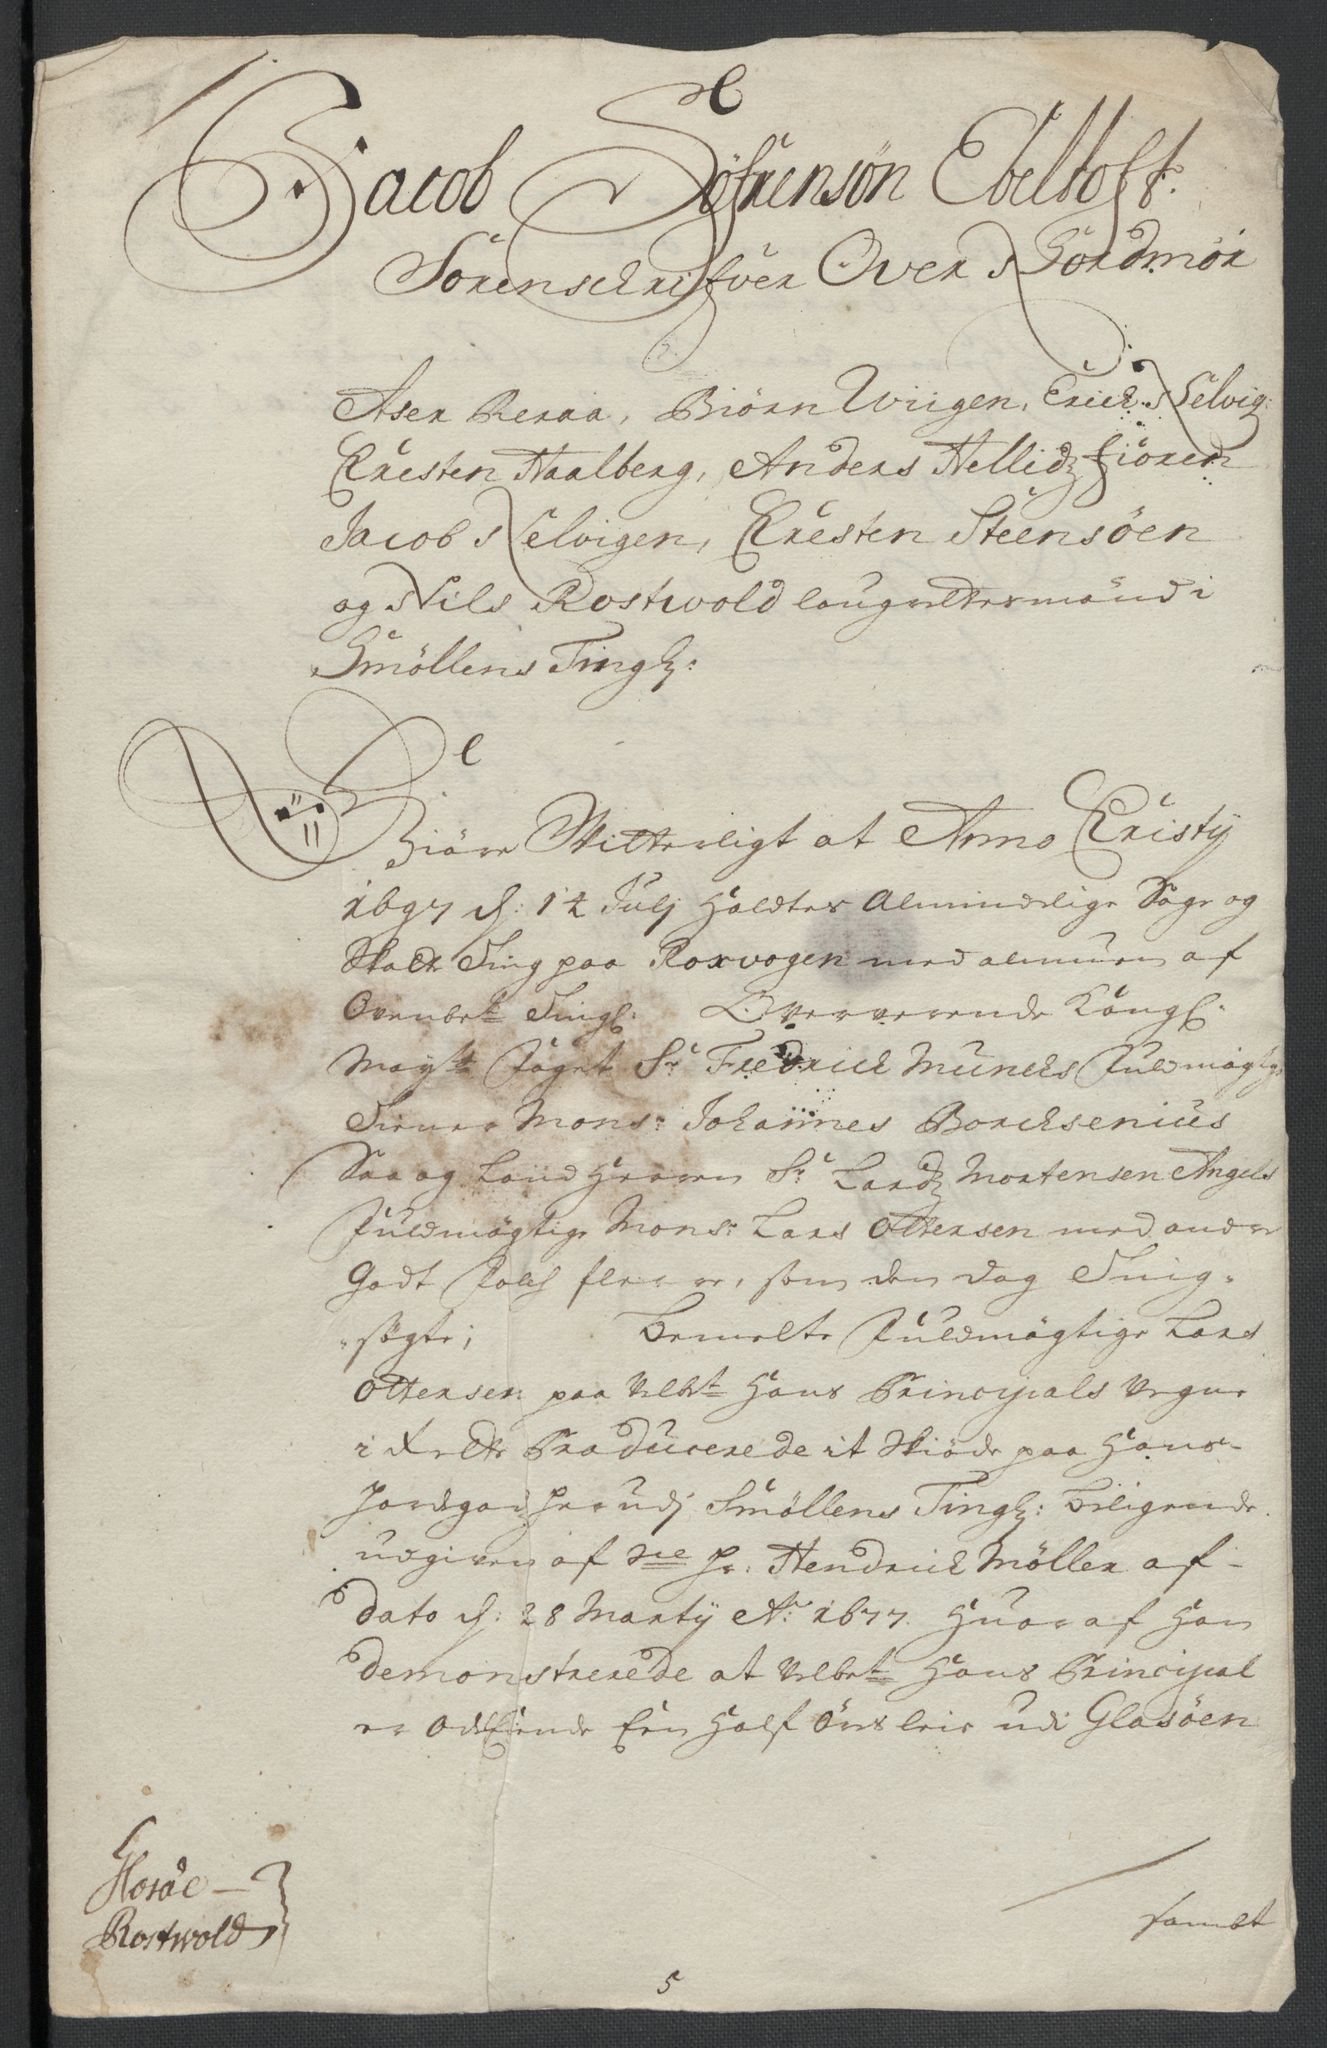 Jacob Söfrensön Ebeltoft
Sorenschrifver Over Nordmör
Aser Reraa, Biörn Wiigen, Erich Nelvig
Cresten Haalberg, Anders Hellidtz fiören
Jacob Nelvigen, Cresten Steensöen
og Nils Rostwold laugrettesmænd i
Smöllens Tingl:
Giöre Witterligt at Anno Cristÿ
1697 d: 12 Julj holdtes Almindelige Sage og
Skatte Ting paa Roxvogen med almuen af
Ovenbete Tingl: Oververende Kongl:
Mayts foget Sr Fredrich Munchs fuldmægtig
Tiener Mons: Johannes Borchsenius
Saa og Land Herren Sr Lardtz Mortensen Angels
fuldmægtige Mons: Lars Ottersen med andre
Godt folch flerre, som den dag Ting-
-sögte; Bemelte fuldmægtige Lars
Ottersen paa velbte Hans Principals vegne
i Rette Producerede it Skiöde paa Hans
Jordegodz her udj Smöllens Tingl: beligende
udgiven af Sl: Hr. Hendrich Möller af
dato d: 28 Martÿ Ao 1677. Huoraf Han
demonstrerede at velbte Hans Principal
er Odel Eiende Een Half Öris leie udi Glasöen
samt
Glosöe
Rostwold
5